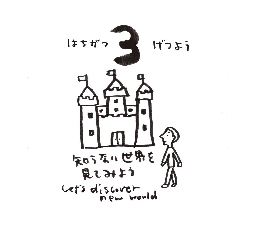 はちがつ 3 げつよう
知らない世界を
見てみよう
Let's discover
new world